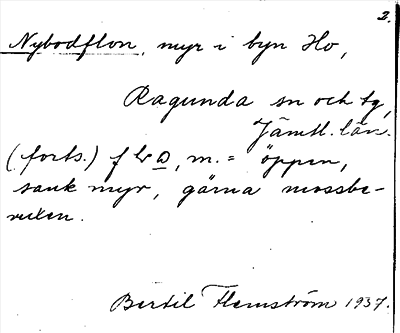 2.
Nybodflon, myr i byn Ho,
Ragunda sn och tg,
Jämtl. län.
(forts.) f, m. = öppen,
sank myr, gärna mossbe-
vuxen.
Bertil Flemström 1937.